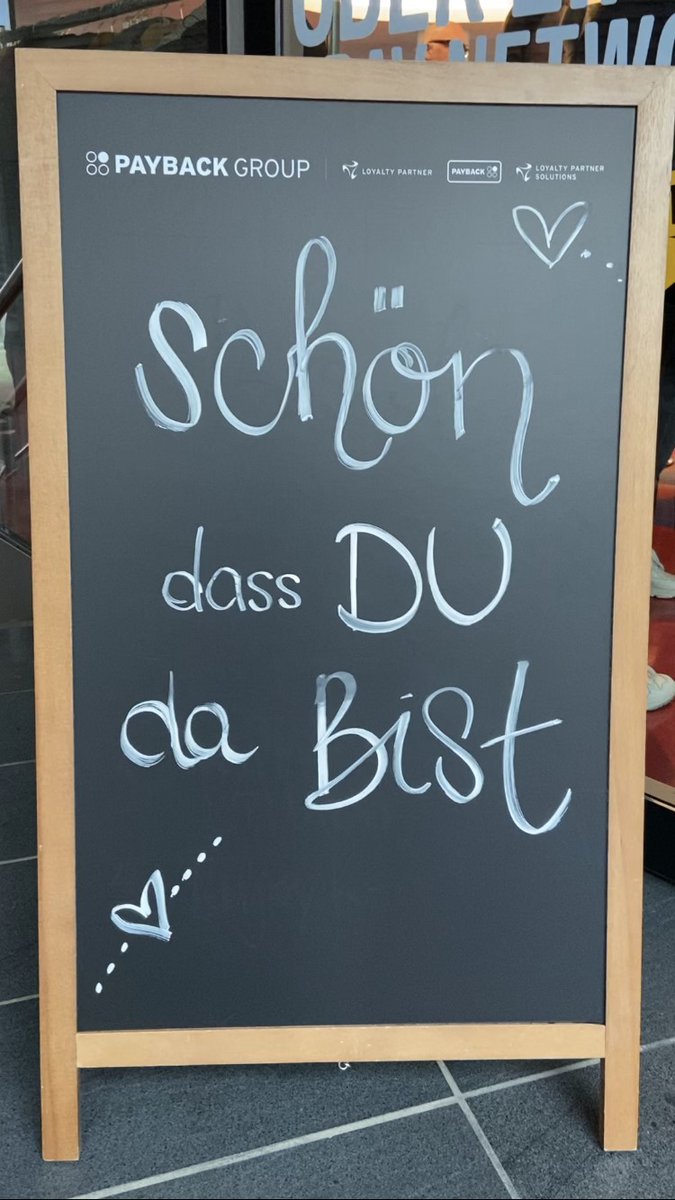 PAYBACK GROUP LOYALTY PARTNER PAYBACK LOYALTY PARTNER SOLUTIONS
schön
dass DU
da Bist